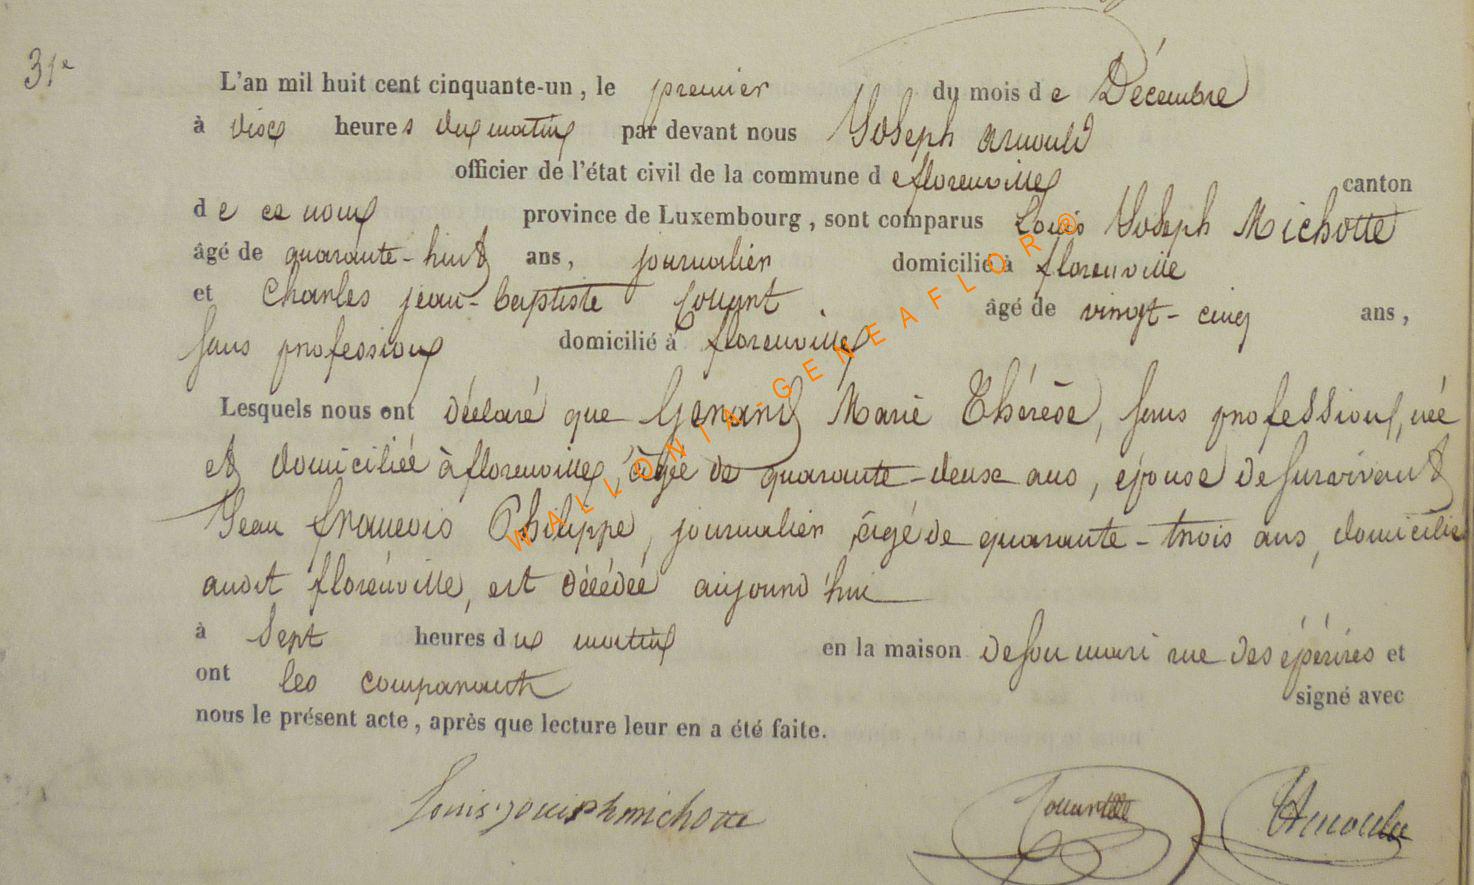 31e
L'an mil huit cent cinquante-un, le premier du mois de Décembre
à dix heures du matin par devant nous Joseph Arnould
officier de l'état civil de la commune de florenville canton
de ce nom province de Luxembourg, sont comparus Louis Joseph Michotte
âgé de quarante-huit ans, journalier domicilié à florenville
et Charles jean-baptiste âgé de vingt-cinq ans,
sans profession domicilié à florenville
Lesquels nous ont déclaré que Genard Marie Thérèse, sans profession, née
et domiciliée à florenville, âgée de quarante-deux ans, épouse de survivant
Jean françois Philippe, journalier, âgé de quarante-trois ans, domicilié
audit florenville, est décédée aujourd'hui
à sept heures du matin en la maison de son mari rue des épérires et
ont les comparants signé avec
nous le présent acte, après que lecture leur en a été faite.
louis joseph michotte Arnould
WALLONIA-GENEAFLOR@